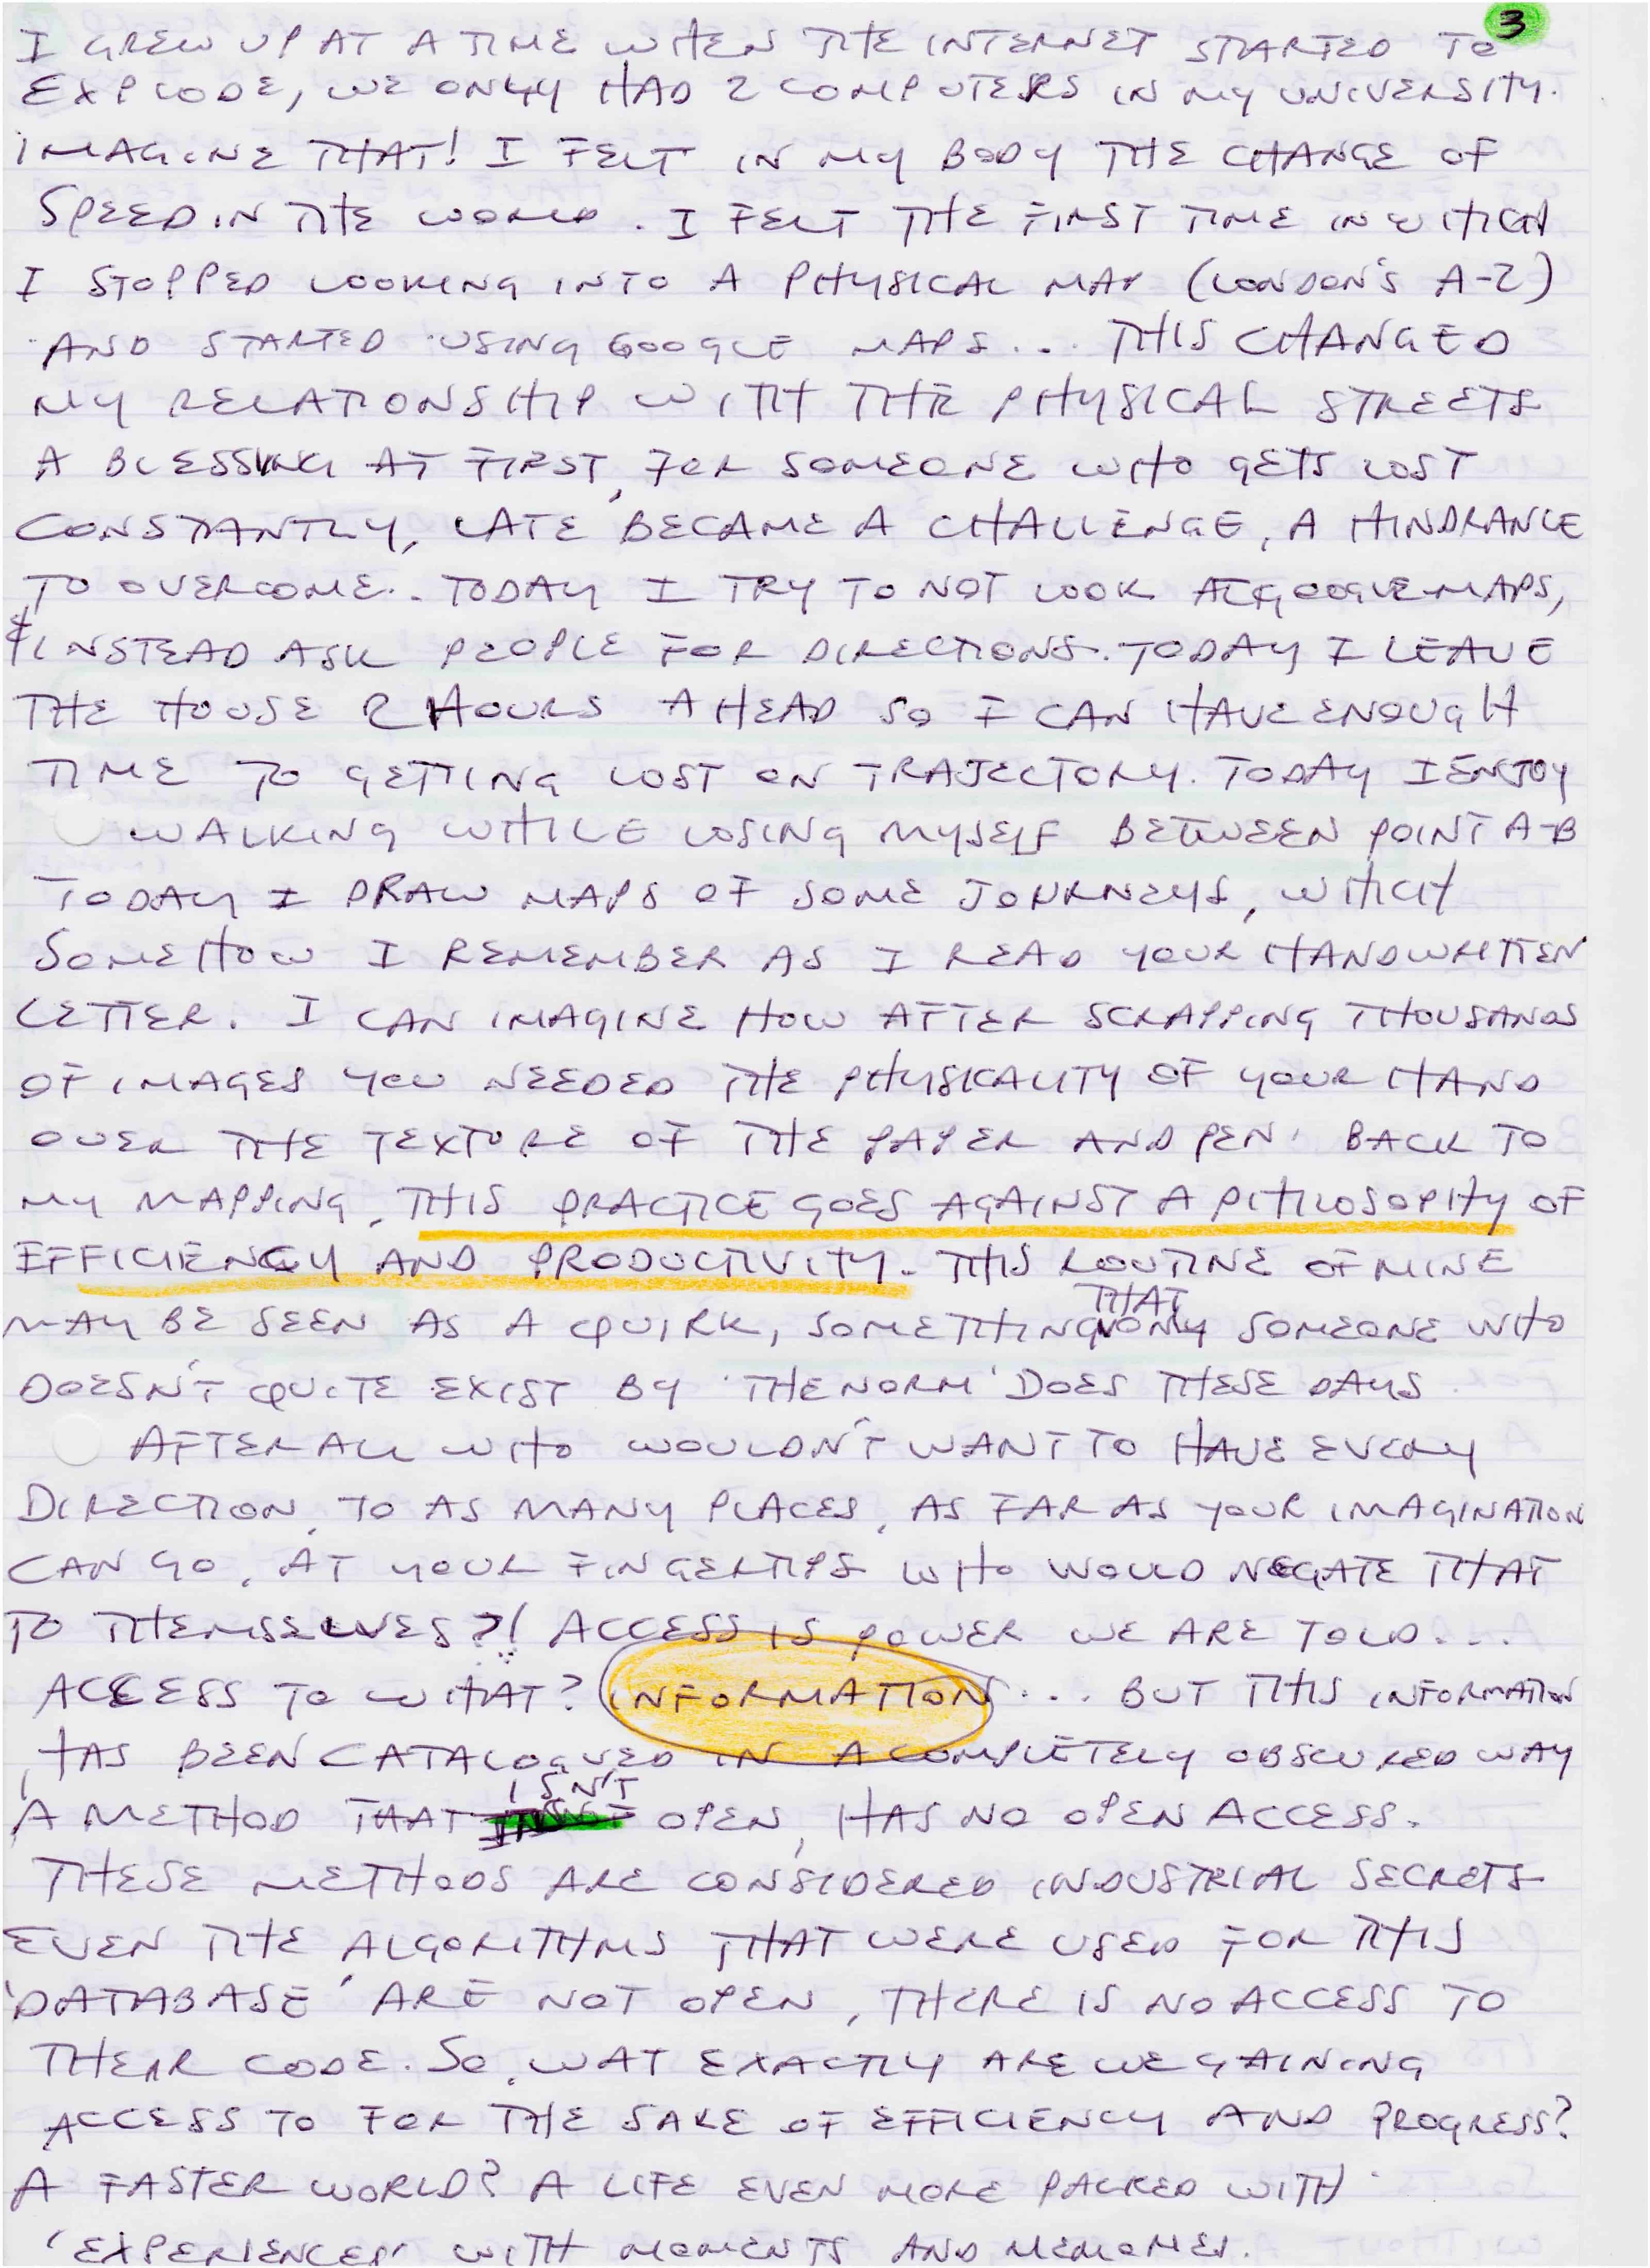 3
I GREW UP AT A TIME WHEN THE INTERNET STARTED TO
EXPLODE, WE ONLY HAD 2 COMPUTERS IN MY UNIVERSITY.
IMAGINE THAT! I FELT IN MY BODY THE CHANGE OF
SPEED IN THE WORLD. I FELT THE FIRST TIME IN WHICH
I STOPPED LOOKING INTO A PHYSICAL MAP (LONDON'S A-Z)
AND STARTED USING GOOGLE MAPS... THIS CHANGED
MY RELATIONSHIP WITH THE PHYSICAL STREETS
A BLESSING AT FIRST, FOR SOMEONE WHO GETS LOST
CONSTANTLY, LATE BECAME A CHALLENGE, A HINDRANCE
TO OVERCOME.. TODAY I TRY TO NOT LOOK AT GOOGLE MAPS,
& INSTEAD ASK PEOPLE FOR DIRECTIONS. TODAY I LEAVE
THE HOUSE 2 HOURS AHEAD SO I CAN HAVE ENOUGH
TIME TO GETTING LOST ON TRAJECTORY. TODAY I ENJOY
WALKING WHILE LOSING MYSELF BETWEEN POINT A-B
TODAY I DRAW MAPS OF SOME JOURNEYS, WHICH
SOMEHOW I REMEMBER AS I READ YOUR HANDWRITTEN
LETTER. I CAN IMAGINE HOW AFTER SCRAPPING THOUSANDS
OF IMAGES YOU NEEDED THE PHYSICALITY OF YOUR HAND
OVER THE TEXTURE OF THE PAPER AND PEN. BACK TO
MY MAPPING, THIS PRACTICE GOES AGAINST A PHILOSOPHY OF
EFFICIENCY AND PRODUCTIVITY. THIS ROUTINE OF MINE
MAY BE SEEN AS A QUIRK, SOMETHING THAT ONLY SOMEONE WHO
DOESN'T QUITE EXIST BY 'THE NORM' DOES THESE DAYS.
AFTER ALL WHO WOULDN'T WANT TO HAVE EVERY
DIRECTION, TO AS MANY PLACES, AS FAR AS YOUR IMAGINATION
CAN GO, AT YOUR FINGERTIPS WHO WOULD NEGATE THAT
TO THEMSELVES?! ACCESS IS POWER WE ARE TOLD...
ACCESS TO WHAT? INFORMATION... BUT THIS INFORMATION
HAS BEEN CATALOGUED IN A COMPLETELY OBSCURED WAY
A METHOD THAT ISN'T OPEN, HAS NO OPEN ACCESS.
THESE METHODS ARE CONSIDERED INDUSTRIAL SECRETS
EVEN THE ALGORITHMS THAT WERE USED FOR THIS
'DATABASE' ARE NOT OPEN, THERE IS NO ACCESS TO
THEIR CODE. SO, WAT EXACTLY ARE WE GAINING
ACCESS TO FOR THE SAKE OF EFFICIENCY AND PROGRESS?
A FASTER WORLD? A LIFE EVEN MORE PACKED WITH
'EXPERIENCES' WITH MOMENTS AND MEMORIES.